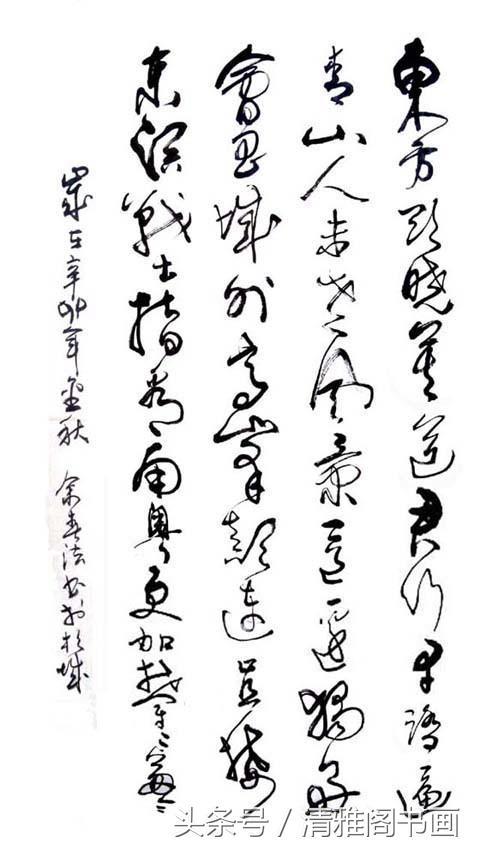 東方欲曉莫道君行早踏遍
青山人未老風景這邊獨好
會昌城外高峰顛連直接
東溟戰士指看南粵更加鬱〻蔥〻
歲在辛卯年金秋 余春法書於杭城
头条号 / 清雅阁书画